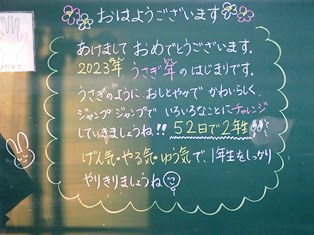 おはようございます
あけまして おめでとうございます。
2023年 うさぎ年 のはじまりです。
うさぎのように おしとやかで かわいらしく、
ジャンプ ジャンプで いろいろなことに チャレンジ
していきましょうね!! 52日で2年生!!
げん気・やる気・ゆう気で、1年生をしっかり
やりきりましょうね